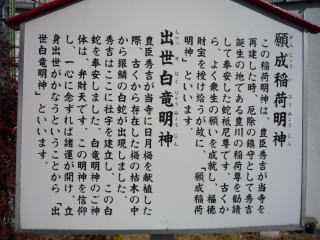 願成稲荷明神
がんじょういなりみょうじん
この稲荷明神は、豊臣秀吉が当寺を
再建した時、厄除の鎮守として秀吉
誕生の地である豊川の稲荷尊を勧請
して奉安した蛇祇尼尊です。古くか
ら、よく衆生の願いを成就し、福徳
財宝を授け給うが故に、「願成稲荷
明神」といいます。
出世白竜明神
しゅっせはくりゅうみょうじん
豊臣秀吉が当寺に日月梅を献植した
際、古くから存在した梅の枯木の中
から銀鱗の白蛇が出現しました。
秀吉はここに社宇を建立し、この白
蛇を奉安しました。白竜明神のご神
体は、弁財天です。この明神を信仰
し、一心に念ずれば諸運が開け、立
身出世がかなうということから「出
世白竜明神」といいます。